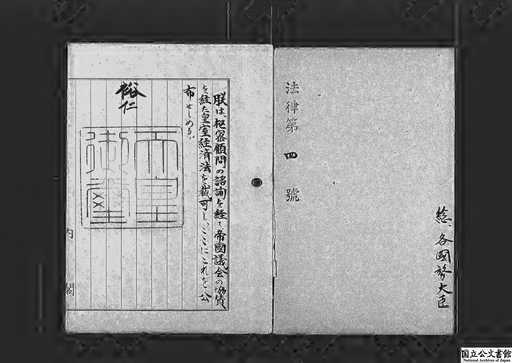 法律第四號
総、各國務大臣
朕は、枢密顧問の諮詢を経て、帝國議会の協賛
を経た皇室経済法を裁可し、ここにこれを公
布せしめる。
裕仁
天皇
御璽
内閣
国立公文書館
National Archives of Japan